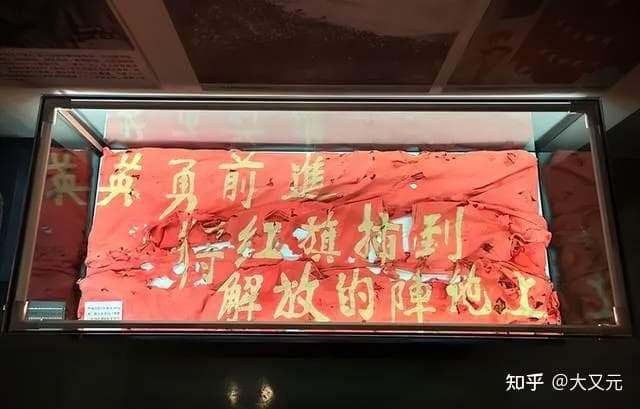 英勇前進
将红旗插到
解放的陣地上
知乎 @大又元